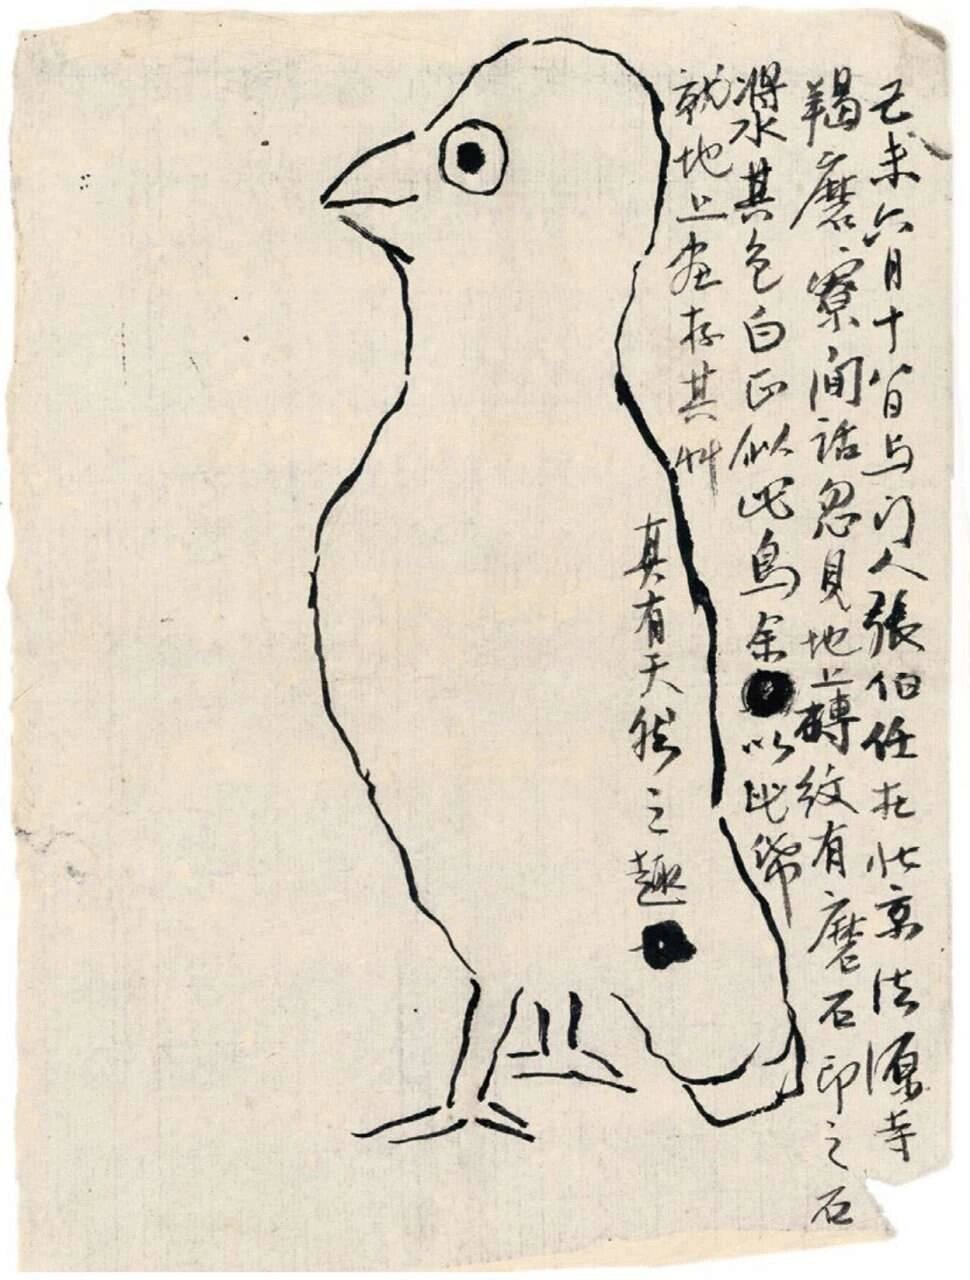 己未六月十八日与门人張伯任在北京法源寺
羯磨寮间话忽見地上磚紋有磨石印之石
漿水其色白正似此鳥余以此紙
就地上画存其艸
真有天然之趣